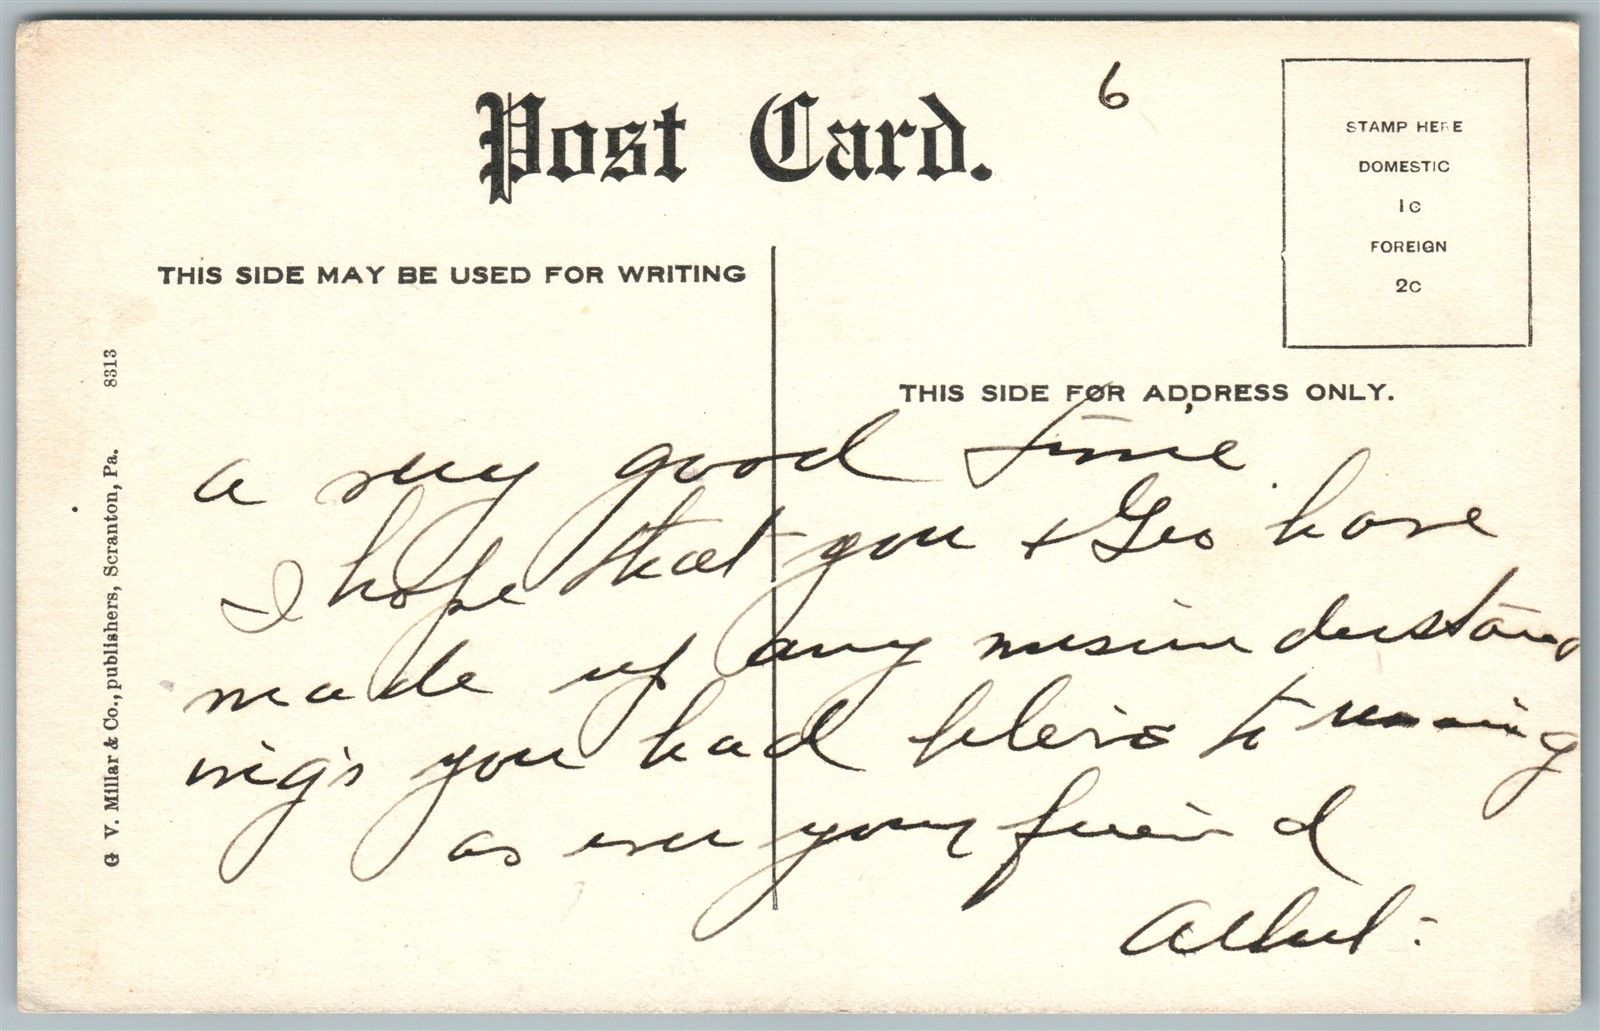 6
Post Card.
STAMP HERE
DOMESTIC
1c
FOREIGN
2c
THIS SIDE MAY BE USED FOR WRITING
THIS SIDE FOR ADDRESS ONLY.
G. V. Millar & Co., publishers, Scranton, Pa. 8313
a very good time
I hope that you & Geo have
made up any misunderstand
ing's you had
as ever your friend